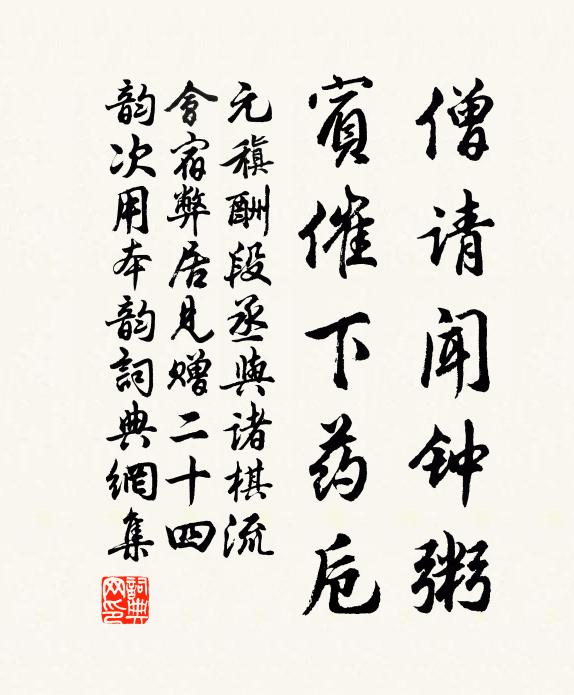 僧请闻钟粥
宾催下药卮
元稹酬段丞與诸棋流
會宿弊居見赠二十四
韵次用本韵詞典網集
詞典
网印